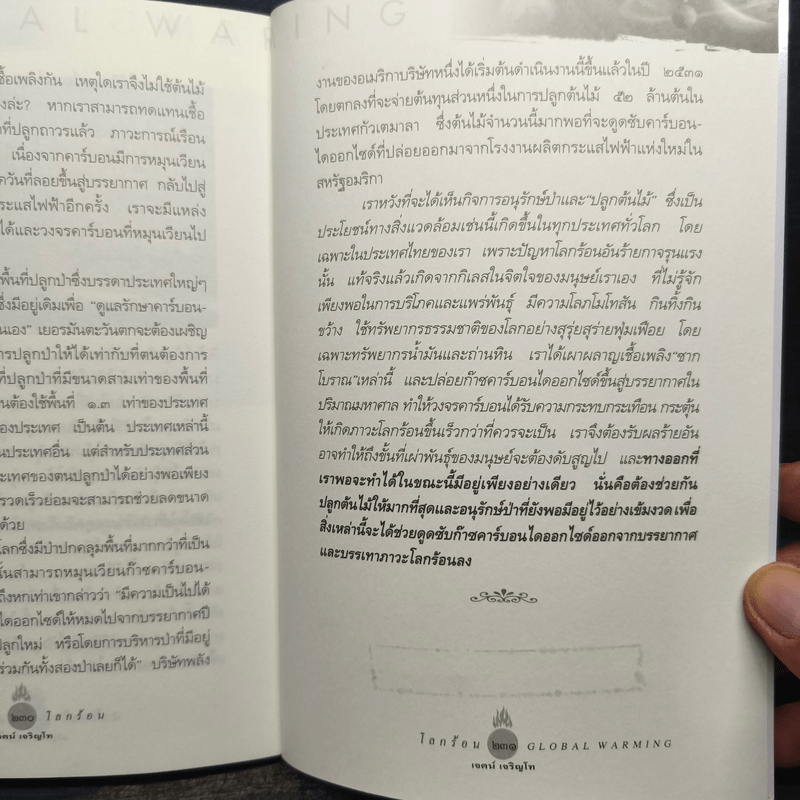 AL WARING
ชื้อเพลิงกัน เหตุใดเราจึงไม่ใช้ต้นไม้
งล่ะ? หากเราสามารถทดแทนเชื้อ
าที่ปลูกถาวรแล้ว ภาวะการณ์เรือน
เนื่องจากคาร์บอนมีการหมุนเวียน
ควันที่ลอยขึ้นสู่บรรยากาศ กลับไปสู่
ระแสไฟฟ้าอีกครั้ง เราจะมีแหล่ง
ได้และวงจรคาร์บอนที่หมุนเวียนไป
พื้นที่ปลูกป่าซึ่งบรรดาประเทศใหญ่ๆ
ซึ่งมีอยู่เดิมเพื่อ “ดูแลรักษาคาร์บอน-
นเอง” เยอรมันตะวันตกจะต้องเผชิญ
การปลูกป่าให้ได้เท่ากับที่ตนต้องการ
ที่ปลูกป่าที่มีขนาดสามเท่าของพื้นที่
นต้องใช้พื้นที่ ๑.๓ เท่าของประเทศ
องประเทศ เป็นต้น ประเทศเหล่านี้
นประเทศอื่น แต่สำหรับประเทศส่วน
ะเทศของตนปลูกป่าได้อย่างพอเพียง
รวดเร็วย่อมจะสามารถช่วยลดขนาด
ด้วย
โลกซึ่งมีป่าปกคลุมพื้นที่มากกว่าที่เป็น
นั้นสามารถหมุนเวียนก๊าซคาร์บอน-
ถึงหกเท่าเขากล่าวว่า “มีความเป็นไปได้
ไดออกไซด์ให้หมดไปจากบรรยากาศปี
ปลูกใหม่ หรือโดยการบริหารป่าที่มีอยู่
ร่วมกันทั้งสองป่าเลยก็ได้” บริษัทพลัง
๒๓๐ โลกร้อน
จศน์ เจริญโท
งานของอเมริกาบริษัทหนึ่งได้เริ่มต้นดำเนินงานนี้ขึ้นแล้วในปี ๒๕๓๑
โดยตกลงที่จะจ่ายต้นทุนส่วนหนึ่งในการปลูกต้นไม้ ๕๒ ล้านต้นใน
ประเทศกัวเตมาลา ซึ่งต้นไม้จำนวนนี้มากพอที่จะดูดซับคาร์บอน-
ไดออกไซด์ที่ปล่อยออกมาจากโรงงานผลิตกระแสไฟฟ้าแห่งใหม่ใน
สหรัฐอมริกา
เราหวังที่จะได้เห็นกิจการอนุรักษ์ป่าและ“ปลูกต้นไม้” ซึ่งเป็น
ประโยชน์ทางสิ่งแวดล้อมเช่นนี้เกิดขึ้นในทุกประเทศทั่วโลก โดย
เฉพาะในประเทศไทยของเรา เพราะปัญหาโลกร้อนอันร้ายกาจรุนแรง
นั้น แท้จริงแล้วเกิดจากกิเลสในจิตใจของมนุษย์เราเอง ที่ไม่รู้จัก
เพียงพอในการบริโภคและแพร่พันธุ์ มีความโลภโมโทสัน กินทิ้งกิน
ขว้าง ใช้ทรัพยากรธรรมชาติของโลกอย่างสุรุ่ยสุร่ายฟุ่มเฟือย โดย
เฉพาะทรัพยากรน้ำมันและถ่านหิน เราได้เผาผลาญเชื้อเพลิง“ซาก
โบราณ”เหล่านี้ และปล่อยก๊าซคาร์บอนไดออกไซด์ขึ้นสู่บรรยากาศใน
ปริมาณมหาศาล ทำให้วงจรคาร์บอนได้รับความกระทบกระเทือน กระตุ้น
ให้เกิดภาวะโลกร้อนขึ้นเร็วกว่าที่ควรจะเป็น เราจึงต้องรับผลร้ายอัน
อาจทำให้ถึงขั้นที่เผ่าพันธุ์ของมนุษย์จะต้องดับสูญไป และทางออกที่
เราพอจะทำได้ในขณะนี้มีอยู่เพียงอย่างเดียว นั่นคือต้องช่วยกัน
ปลูกต้นไม้ให้มากที่สุดและอนุรักษ์ป่าที่ยังพอมีอยู่ไว้อย่างเข้มงวด เพื่อ
สิ่งเหล่านี้จะได้ช่วยดูดซับก๊าซคาร์บอนไดออกไซด์ออกจากบรรยากาศ
และบรรเทาภาวะโลกร้อนลง
โลกร้อน ๒๓๑ GLOBAL WARMING
เจศน์ เจริญโท